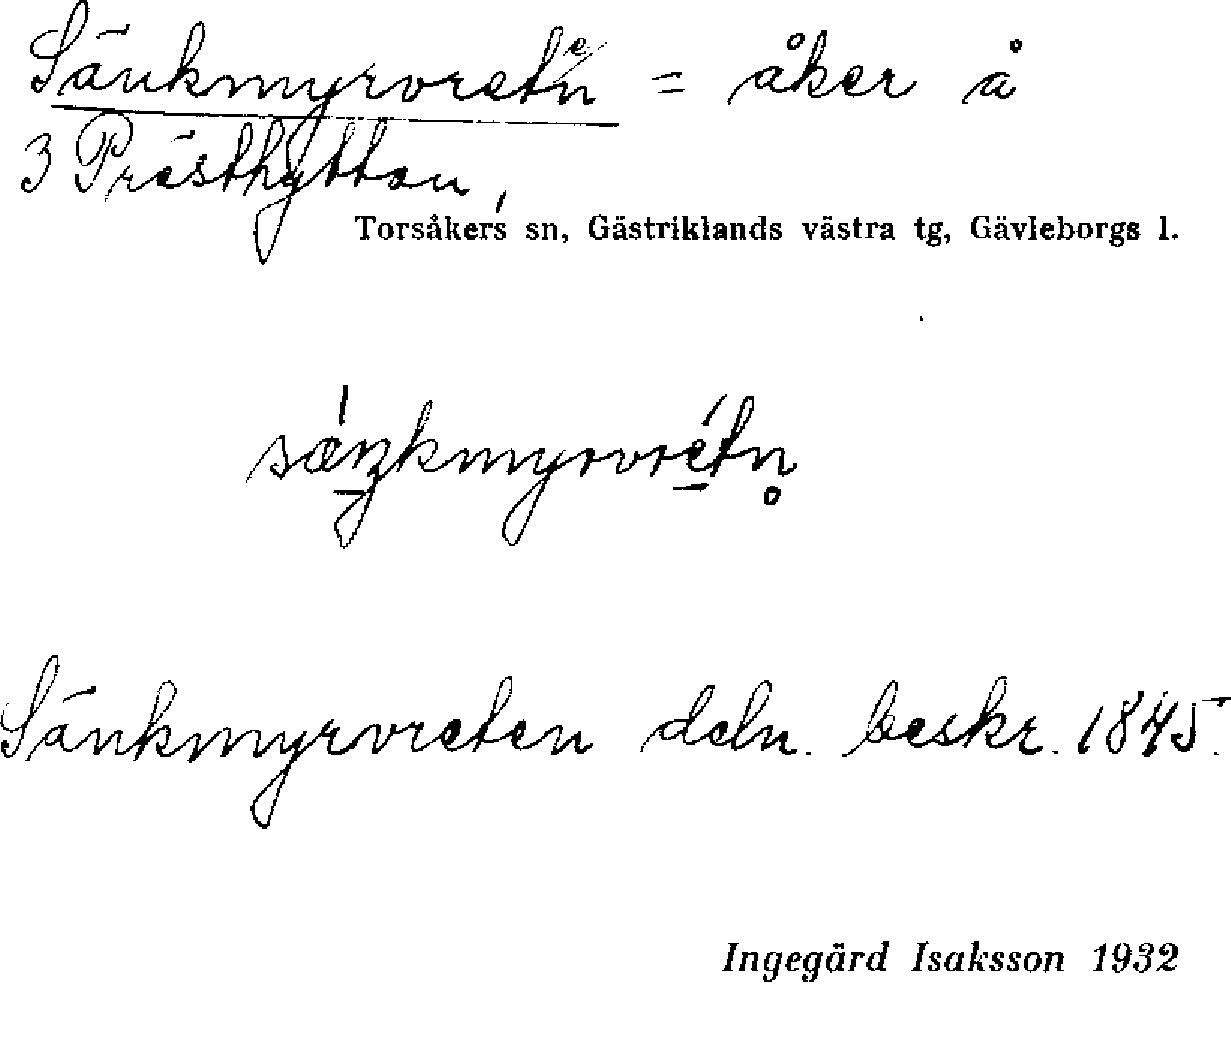 Sänkmyrvreten = åker å
3 Prästhyttan,
Torsåkers sn, Gästriklands västra tg, Gävleborgs l.
sǽŋkmyrvrétn̥
Sänkmyrvreten deln. beskr. 1845.
Ingegärd Isaksson 1932